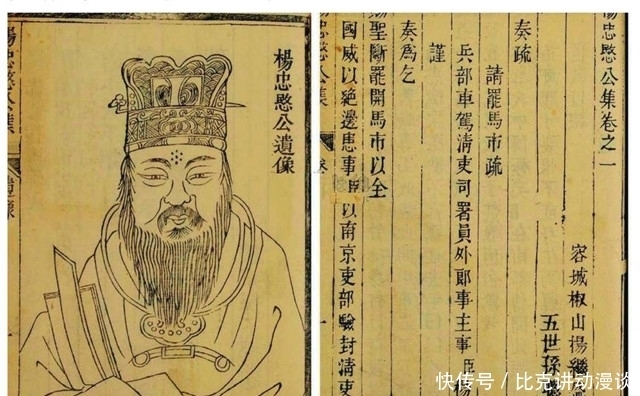 楊忠愍公集
遺像
楊忠愍公遺像
楊忠愍公集卷之一
容城椒山楊繼
五世孫
奏疏
請罷馬市疏
兵部車駕清吏司署員外郎事主事臣楊
謹
奏為乞
賜聖斷罷開馬市以全
國威以絕邊患事臣以南京吏部驗封清吏
快传号／比克讲动漫谈